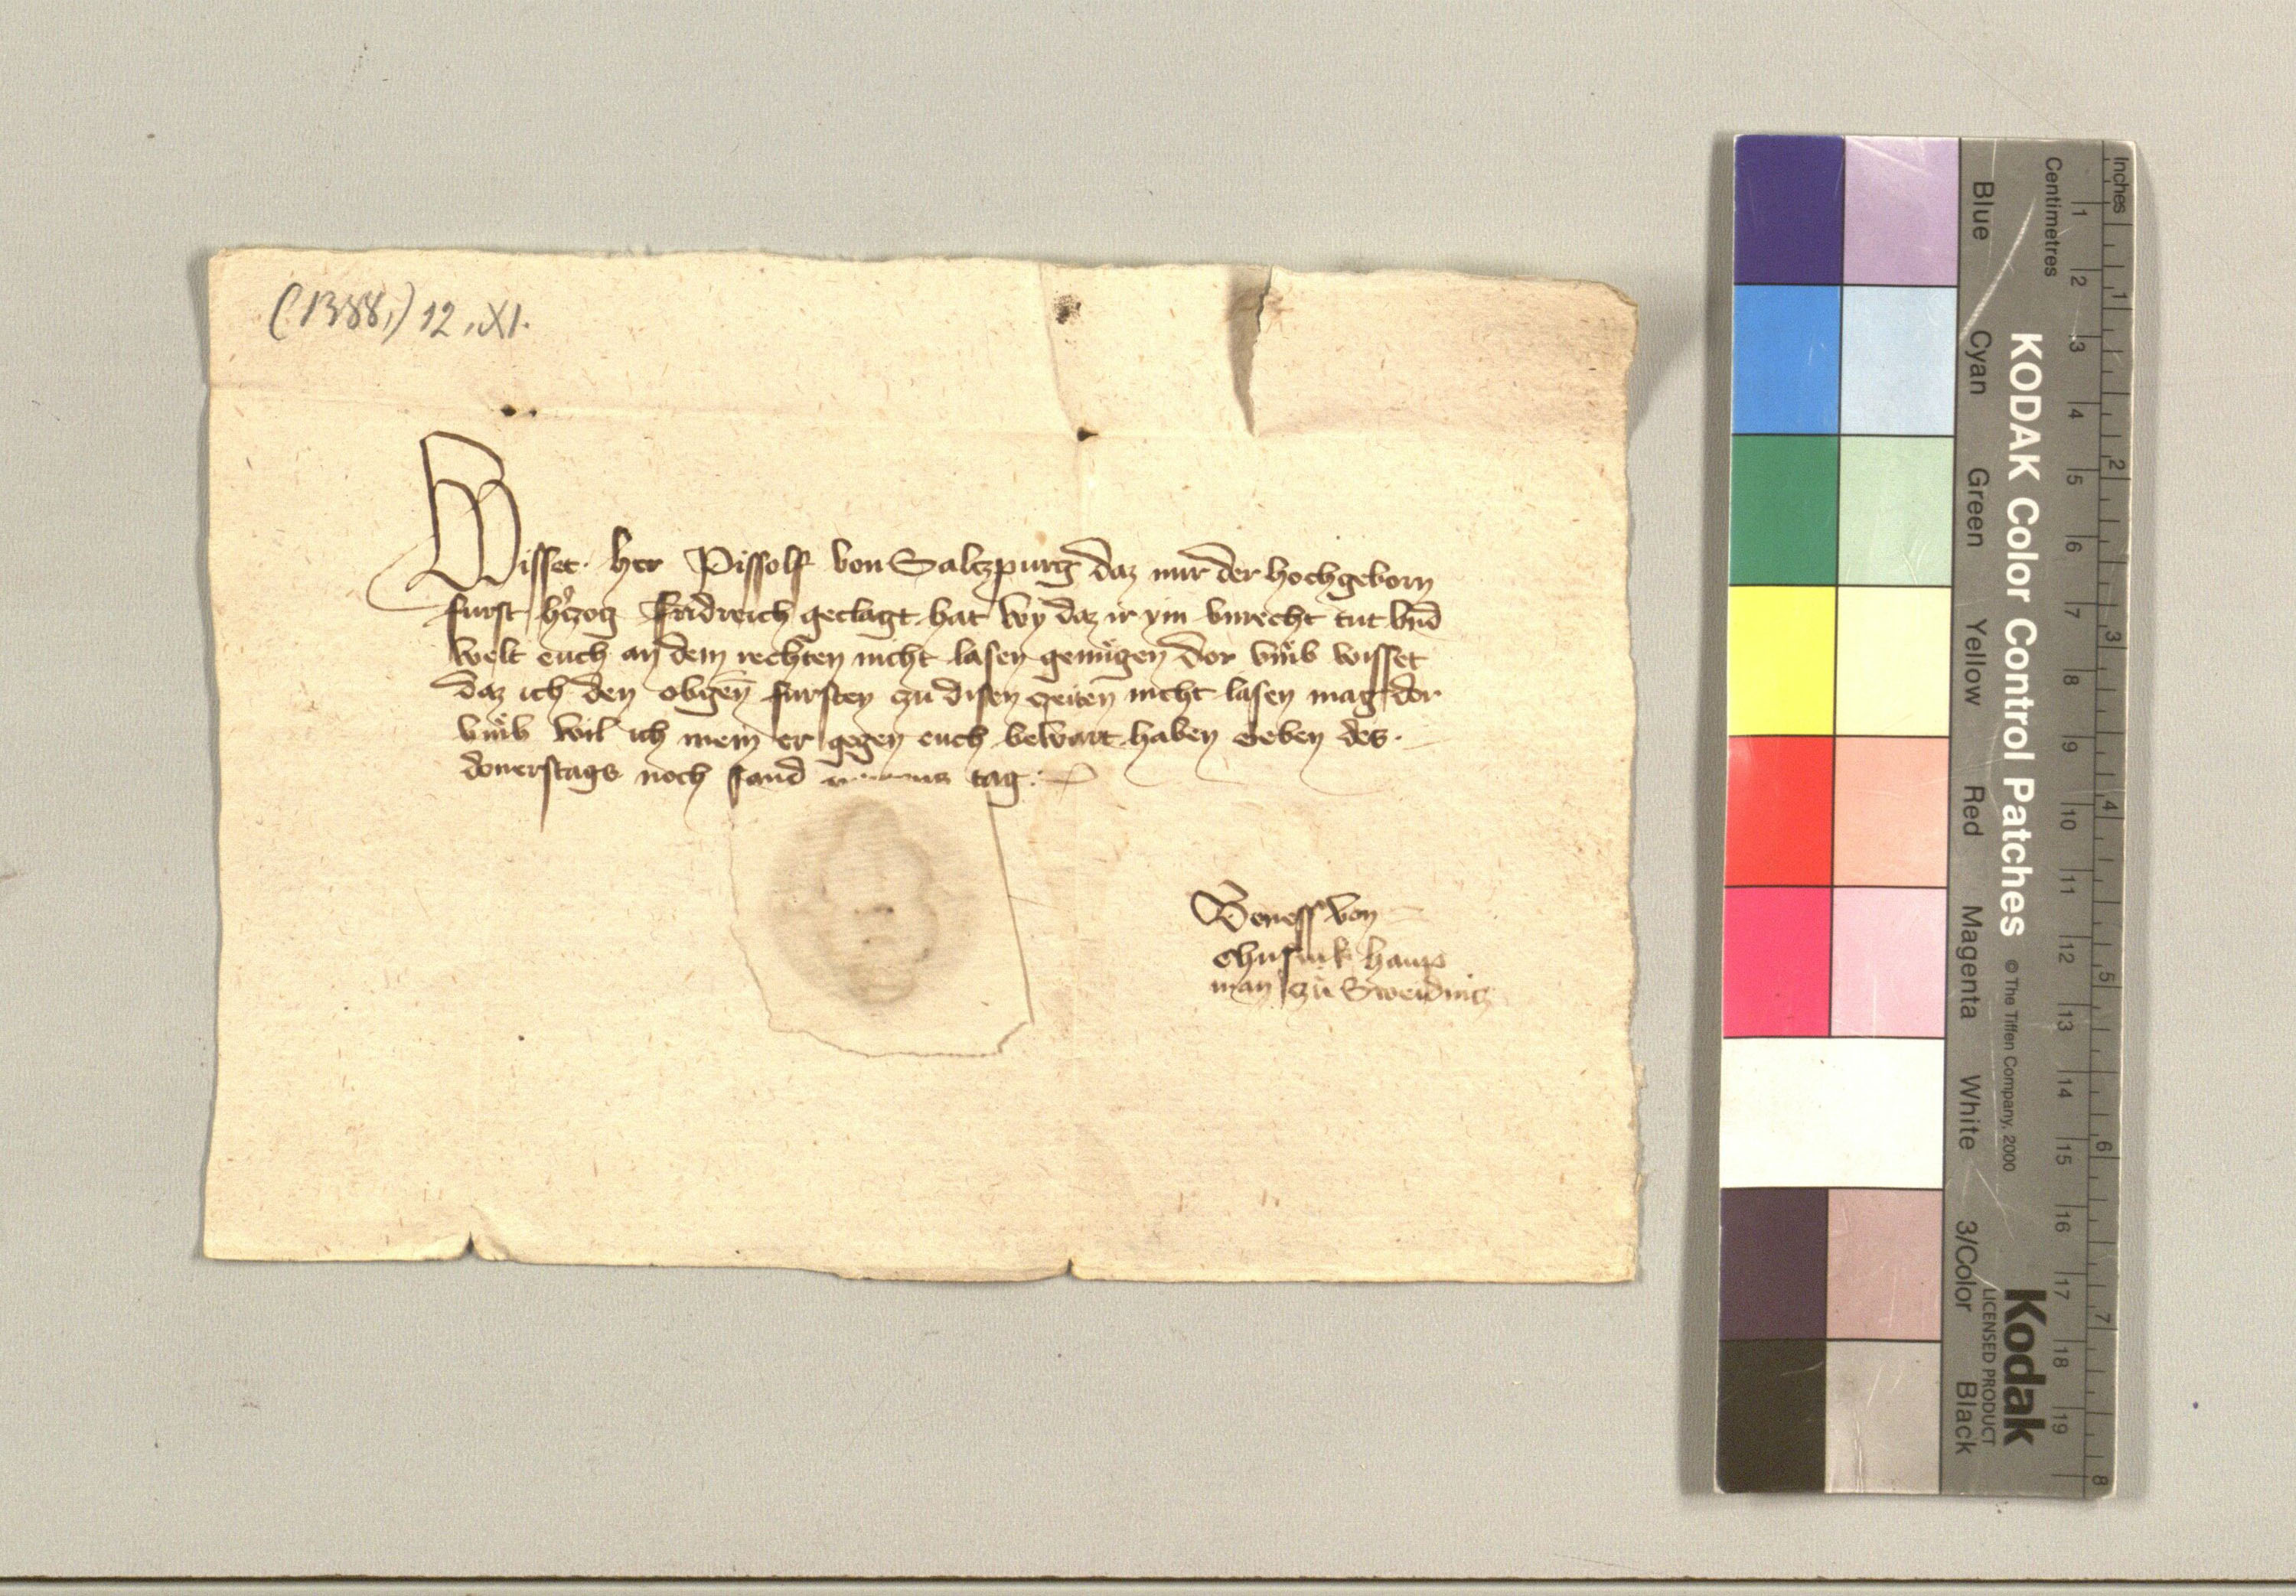 (1388,) 12.XI.
Wisset her Pissolf von Saltzpurg daz mir der hochgeborn
furst hʼczog Fridreich geclagt hat wy daz ir ym vnrecht tut vnd
welt euch an dem rechten nicht lasen genugen dor vmb wisset
daz ich den obgen̄ fursten zu disen zeiten nicht lasen mag dor
vmb wil ich mein er gegen euch bewart haben Geben des
donerstags noch sand tag
Beness von
Chusnik haup
man czu Sweidnicz
Inches
Centimetres
KODAK Color Control Patches
© The Tiffen Company, 2000
Kodak
LICENSED PRODUCT
Blue
Cyan
Green
Yellow
Red
Magenta
White
3/Color
Black
1 2 3 4 5 6 7 8 9 10 11 12 13 14 15 16 17 18 19
1 2 3 4 5 6 7 8